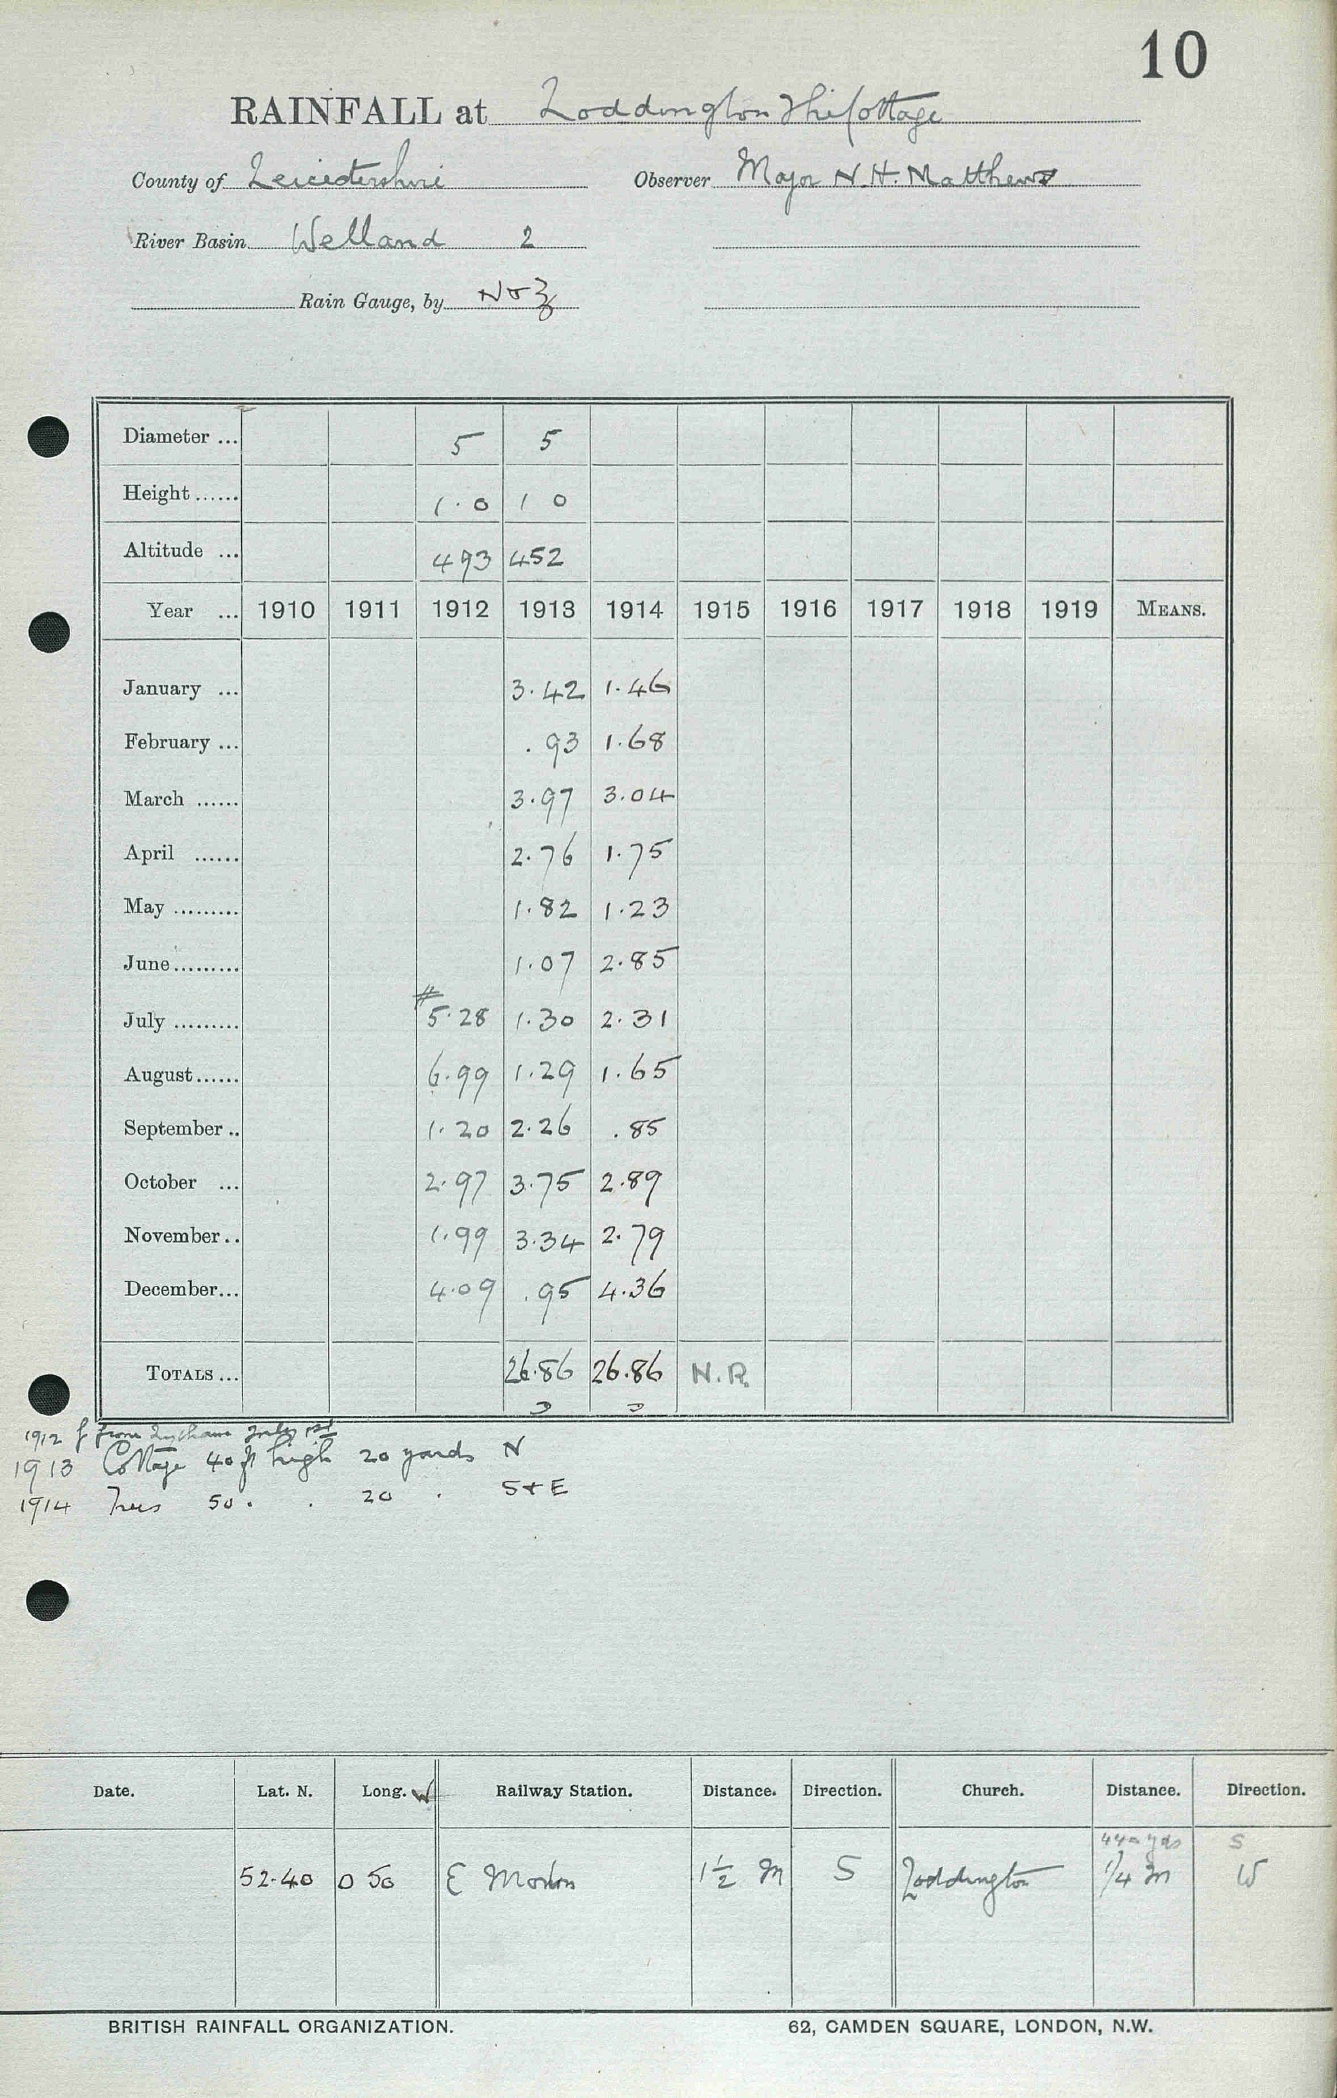 10
RAINFALL at Loddington The Cottage
County of Leicestershire Observer Major N. H. Matthews
River Basin Welland 2
Rain Gauge, by
Diameter ... 5 5
Height ...... 1.0 1 0
Altitude ... 493 452
Year ... 1910 1911 1912 1913 1914 1915 1916 1917 1918 1919 MEANS.
January ... 3.42 1.46
February ... .93 1.68
March ...... 3.97 3.04
April ...... 2.76 1.75
May ......... 1.82 1.23
June ......... 1.07 2.85
July ......... # 5.28 1.30 2.31
August ...... 6.99 1.29 1.65
September .. 1.20 2.26 .85
October ... 2.97 3.75 2.89
November .. 1.99 3.34 2.79
December ... 4.09 .95 4.36
TOTALS ... 26.86 26.86 N.R.
1912 From July 1st
1913 Cottage 40 ft high 20 yards N
1914 Trees 50 . . 20 . S + E
Date. Lat. N. Long. W Railway Station. Distance. Direction. Church. Distance. Direction.
440 yds S
52.40 0 50 E Morton 1½ M S Loddington 1/4 m W
BRITISH RAINFALL ORGANIZATION. 62, CAMDEN SQUARE, LONDON, N.W.